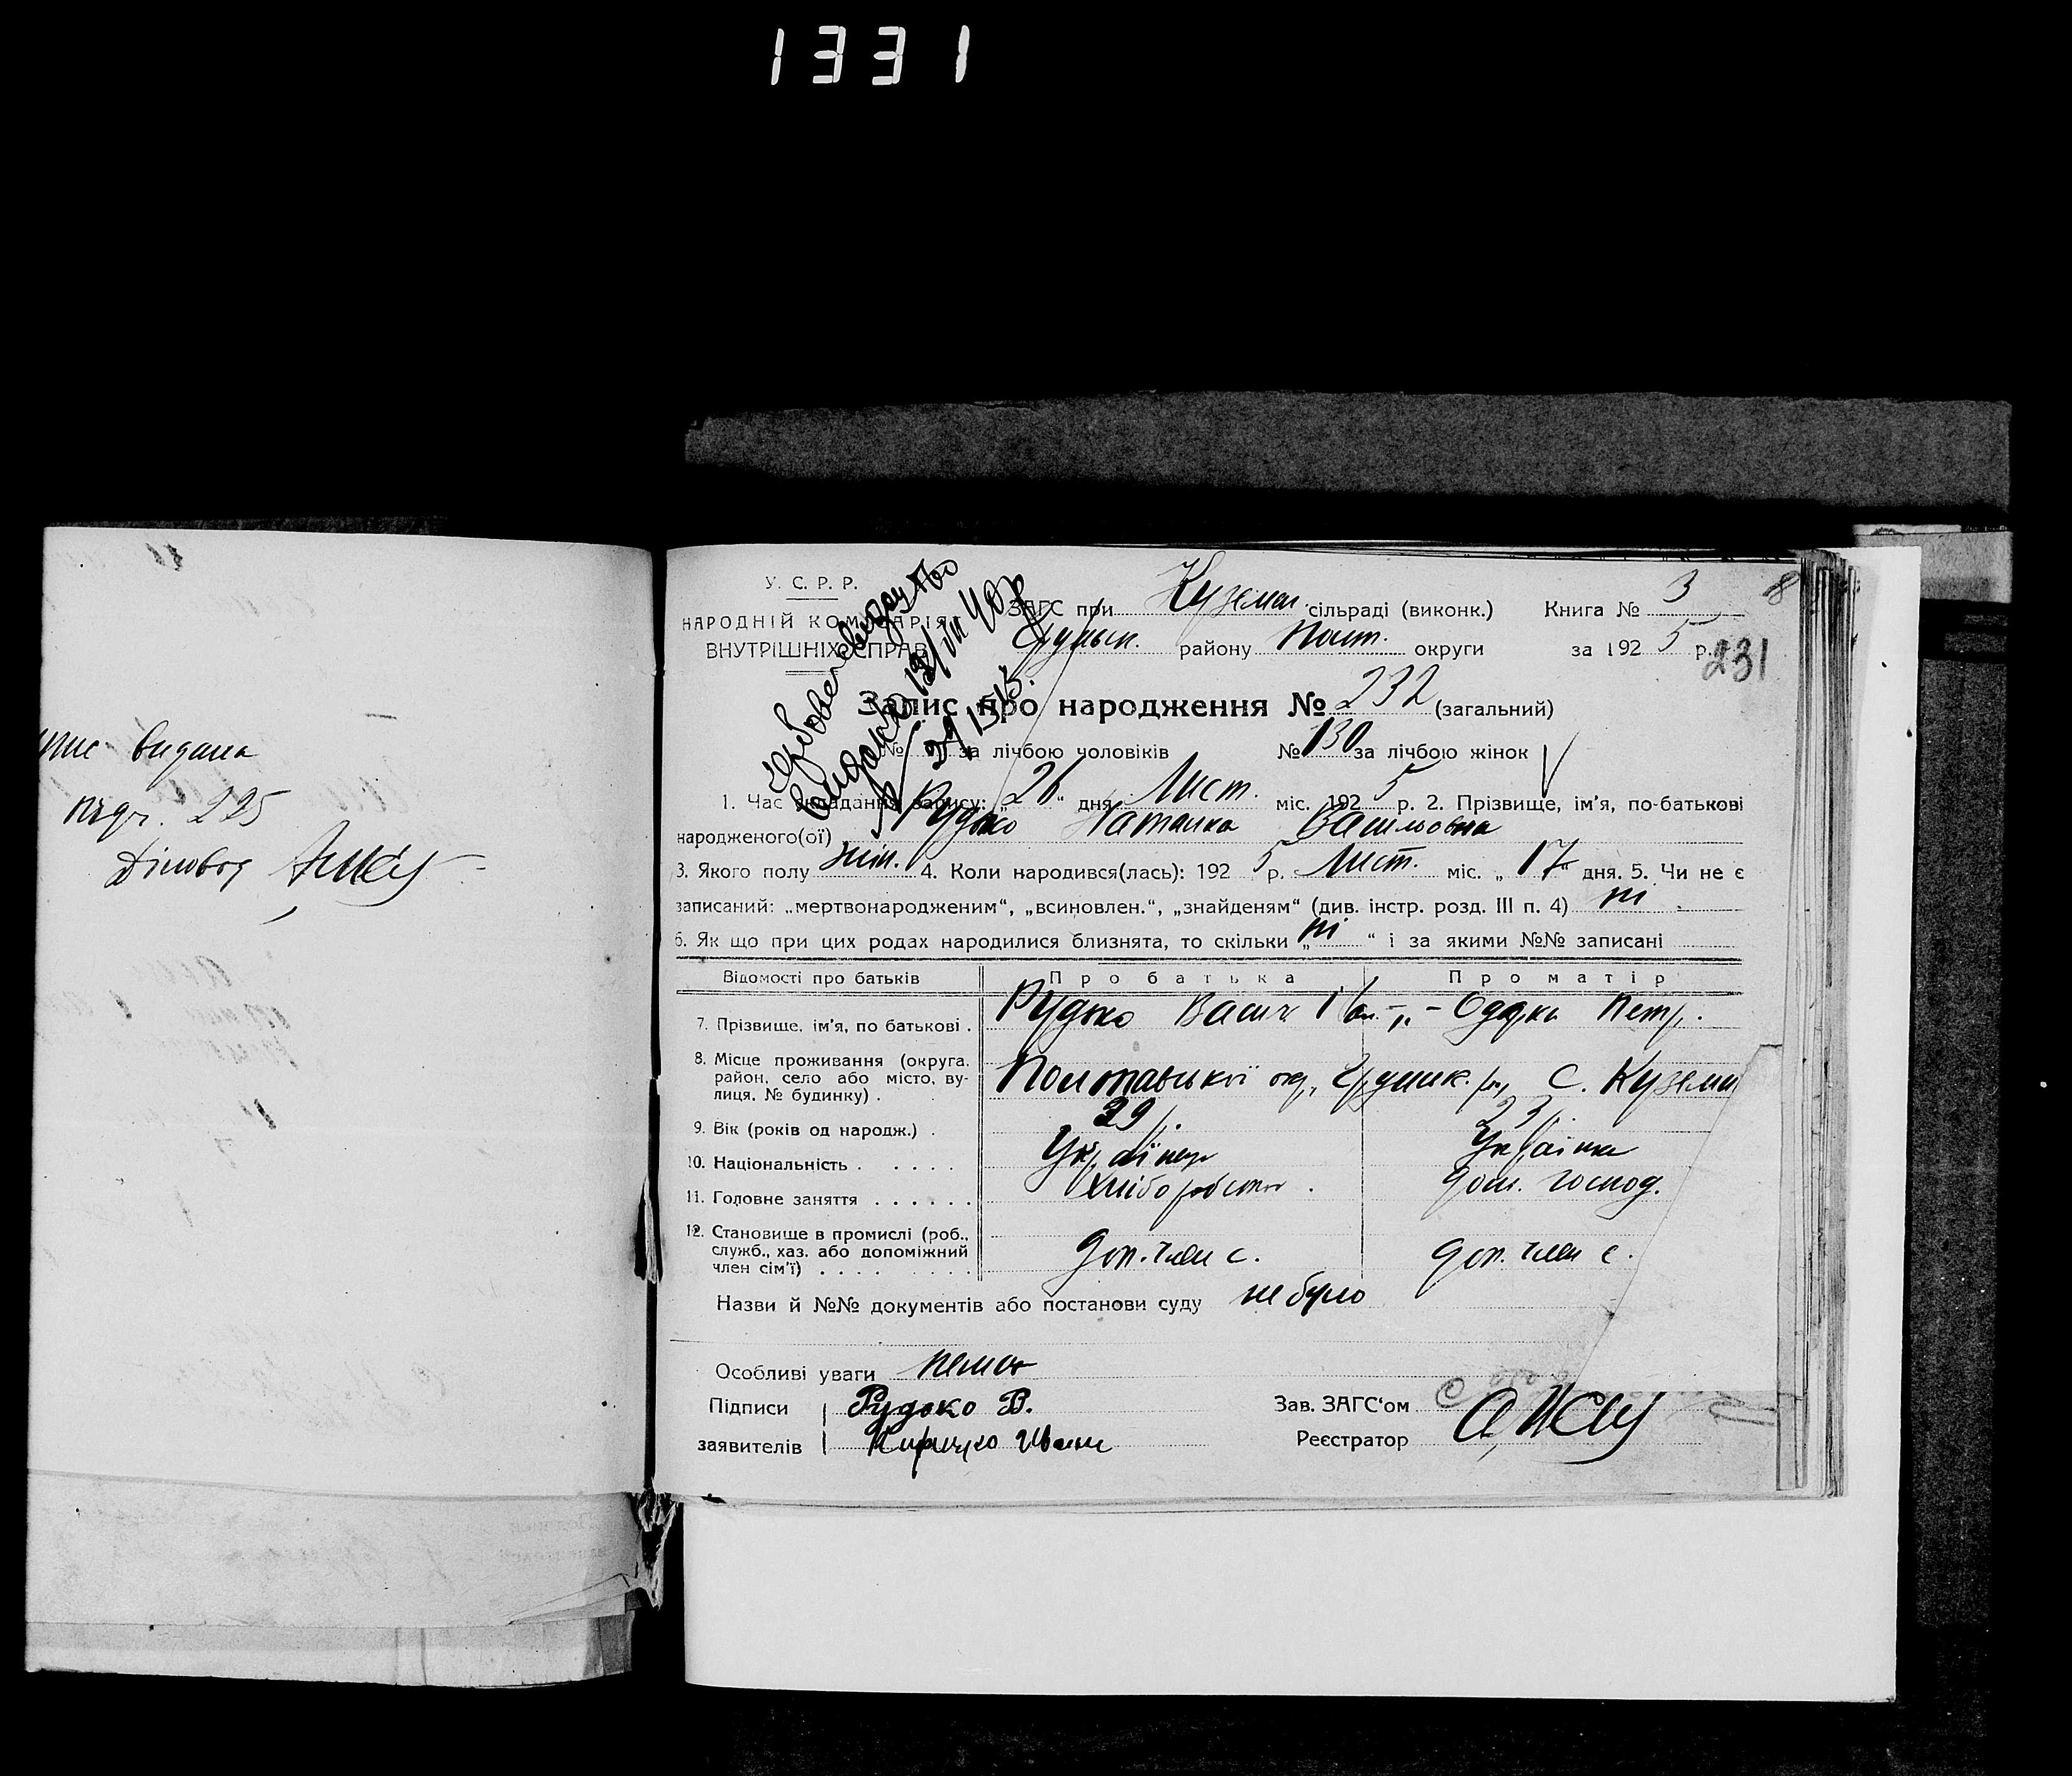 1331
видана
225
Діловод
У. С. Р. Р.
НАРОДНІЙ КОМІСАРІЯТ
ВНУТРІШНІХ СПРАВ
ЗАГС при Куземин сільраді (виконк.) Книга № 3
району Полт. округи за 1925 р.
231
Запис про народження № 232 (загальний)
№ за лічбою чоловіків № 130 за лічбою жінок
1. Час складання запису: „26“ дня Лист. міс. 1925 р. 2. Прізвище, ім’я, по-батькові
народженого(ої) Рудько Наталка Васильовна
3. Якого полу жін. 4. Коли народився(лась): 1925 р. Лист. міс. „17“ дня. 5. Чи не є
записаний: „мертвонародженим“, „всиновлен.“, „знайденям“ (див. інстр. розд. III п. 4) ні
6. Як що при цих родах народилися близнята, то скільки „ні“ і за якими №№ записані
Відомості про батьків Про батька Про матір
7. Прізвище, ім’я, по батькові . Рудько Васил Ів. -„- Одарка Петр.
8. Місце проживання (округа, район, село або місто, вулиця, № будинку) . Полтавської окр., Грунськ. р., с. Куземин
9. Вік (років од народж.) . 29 р. 23 р.
10. Національність . . . . . Українець Українка
11. Головне заняття . . . . . . Хліборобство . дом. господ.
12. Становище в промислі (роб.,
служб., хаз. або допоміжний
член сім’ї) . . . . доп. член с. доп. член с.
Назви й №№ документів або постанови суду не було
Особливі уваги нема
Підписи Рудько В. Зав. ЗАГС‘ом
заявителів Киричко Иван Реєстратор